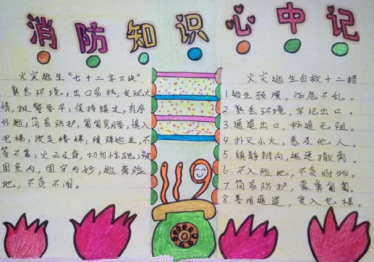 消防知识心中记
火灾逃生"七十二字口诀"
熟悉环境，出口易找，发现火
情，报警要早，保持镇定，有序
外逃，简易防护，匍匐弯腰，慎入
电梯，改走楼梯，缓降逃生，不
等不靠，火已及身，切勿惊跑，被
困室内，固守为妙，远离险
地，不贪不闹。
119
火灾逃生自救十二招
1.逃生预演，临危不乱。
2.熟悉环境，牢记出口。
3.通道出口，畅通无阻。
4.扑灭小火，惠及他人。
5.镇静辨向，迅速撤离
6.不入险地，不贪财物。
7.简易防护，蒙鼻匍匐。
8.善用通道，莫入电梯。